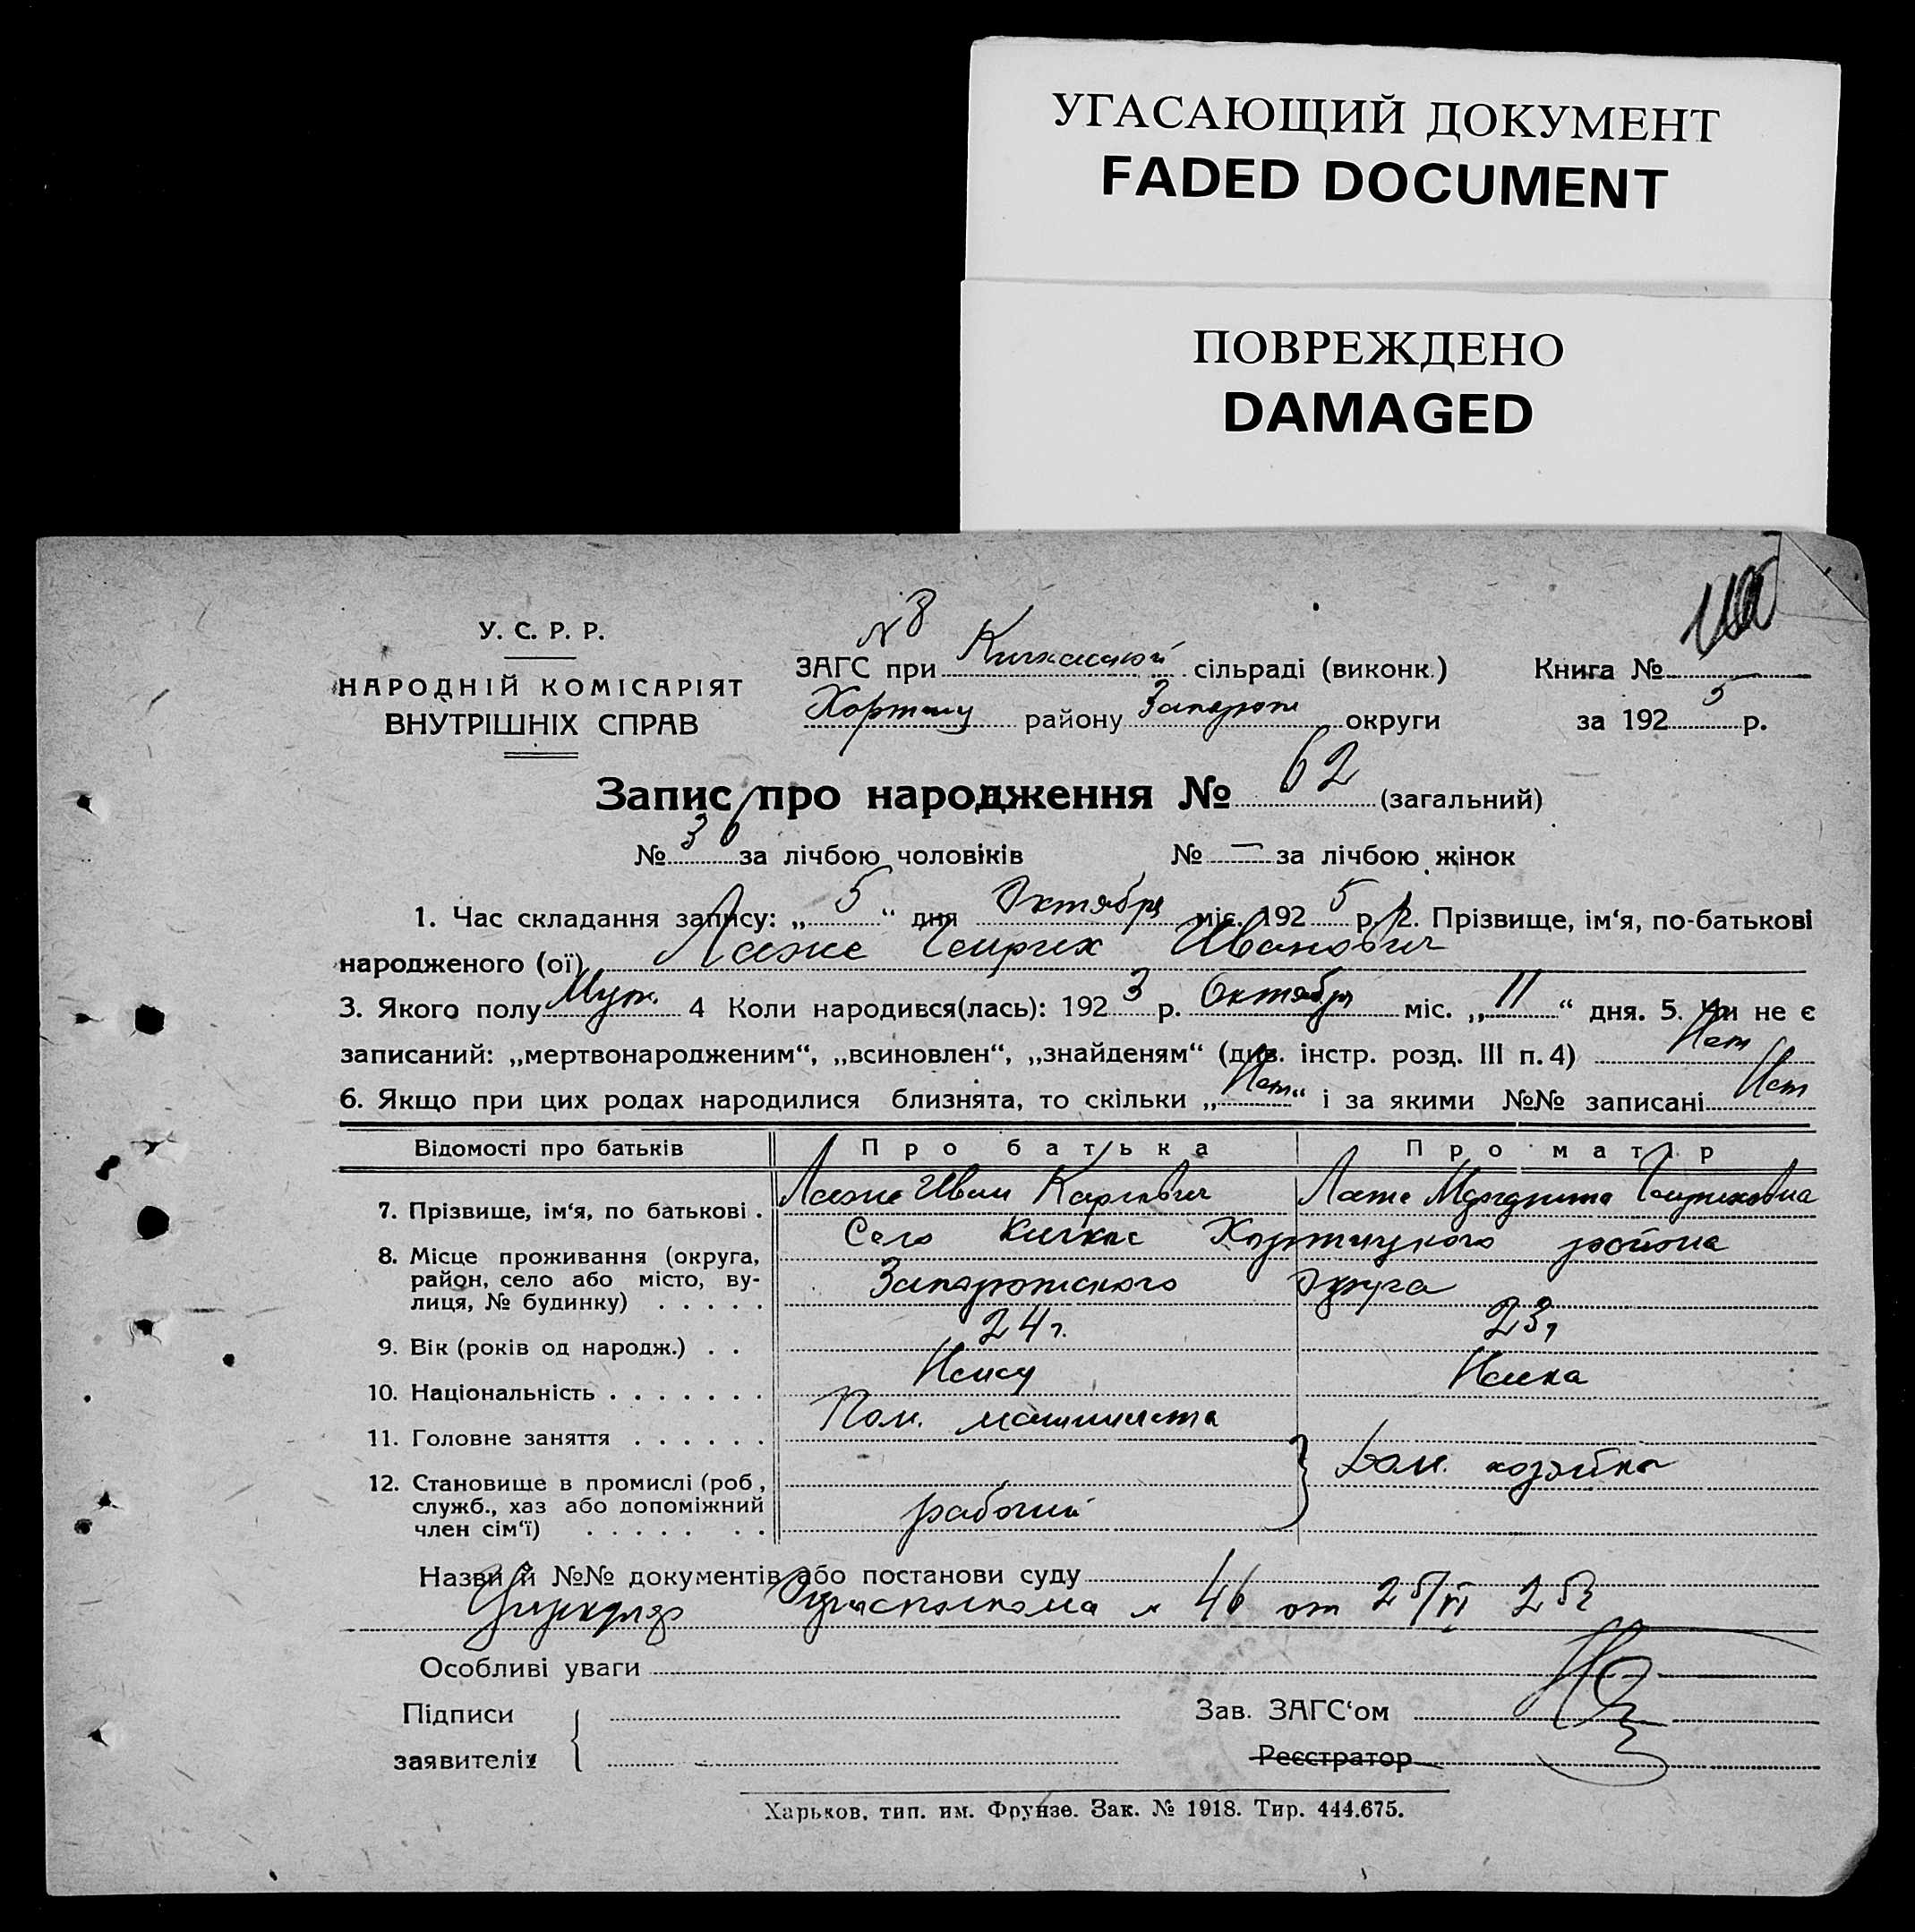 УГАСАЮЩИЙ ДОКУМЕНТ
FADED DOCUMENT
ПОВРЕЖДЕНО
DAMAGED
У. С. Р. Р.
НАРОДНІЙ КОМІСАРІЯТ
ВНУТРІШНІХ СПРАВ
N 8
ЗАГС при Кичкасской сільраді (виконк.)
Хортиц району Запорож округи
Книга №
за 192 5 р.
Запис про народження № 62 (загальний)
№ 36 за лічбою чоловіків № — за лічбою жінок
1. Час складання запису: „ 5 “ дня Октября міс. 192 5 р. 2. Прізвище, ім‘я, по-батькові
народженого (ої) Иванович
3. Якого полу Муж. 4 Коли народився(лась): 192 3 р. Октября міс. „ 11 “ дня. 5. Чи не є
записаний: „мертвонародженим“, „всиновлен“, „знайденям“ (див. інстр. розд. III п. 4) Нет
6. Якщо при цих родах народилися близнята, то скільки „ Нет “ і за якими №№ записані Нет
Відомості про батьків Про батька Про матір
7. Прізвище, ім‘я, по батькові . Иван Карлович
8. Місце проживання (округа, район, село або місто, вулиця, № будинку) . . . . . Село Кичкас Хортицкого района
Запорожского Округа
9. Вік (років од народж.) . . 24 г. 23 г
10. Національність . . . . . . . Немец Немка
11. Головне заняття . . . . . . Пом. машиниста
12. Становище в промислі (роб, служб., хаз або допоміжний член сім‘ї) . . . . . . . рабочий } Дом. хозяйка
Назви й №№ документів або постанови суду
Циркуляр Окрисполкома № 46 от 25/VI 25г
Особливі уваги
Підписи
заявителів
Зав. ЗАГС‘ом
Реєстратор
Харьков, тип. им. Фрунзе. Зак. № 1918. Тир. 444.675.